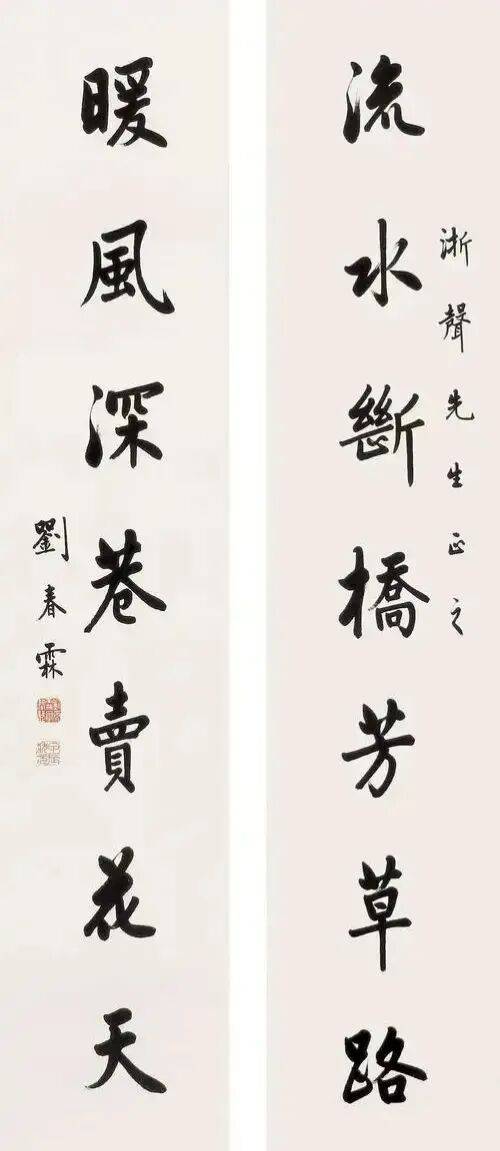 浙聲先生正之
流水斷橋芳草路
暖風深巷賣花天
劉春霖